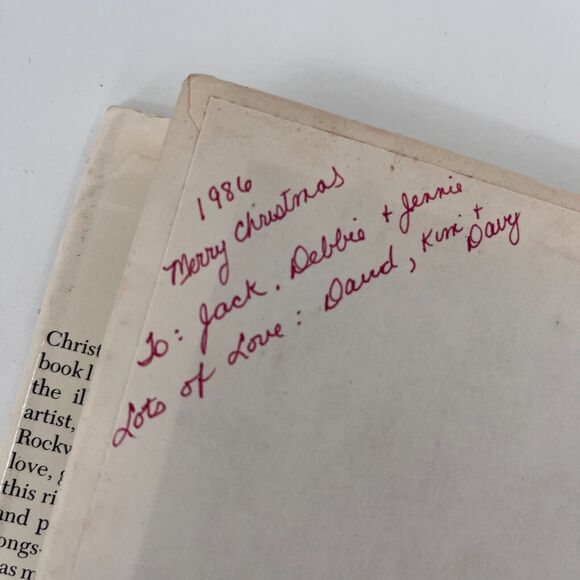 1986
Merry Christmas
To: Jack, Debbie + Jennie
Lots of Love: David, Kim +
Davy
Christ
book
the il
artist,
Rockw
love, g
this ri
and p
ongs-
as m